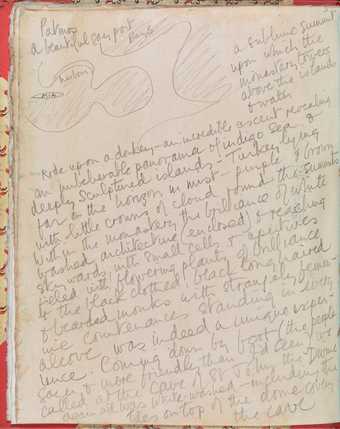 Patmos
a beautiful gay port
harbour
a sublime summit
upon which the
monastery towers
above the islands
& water
Rode upon a donkey – an incredible ascent revealing
an unbelievable panorama of indigo sea &
deeply sculptured islands – Turkey lying
far on the horizon in mist – purple & brown
with little crowns of cloud round the summits
Within the monastery the brilliance of white
washed architecture (enclosed) & reaching
skywards with small cells & apertures
filled with flowering plants of brilliance
to the black clothed, black long haired
& bearded monks with strangely femi-
nine countenances standing in every
alcove was indeed a unique exper-
ience. Coming down by foot (the people
more friendly than I'd seen) we
called at the cave of St John the Divine
again all was white washed – including the
on top of the dome
the cave